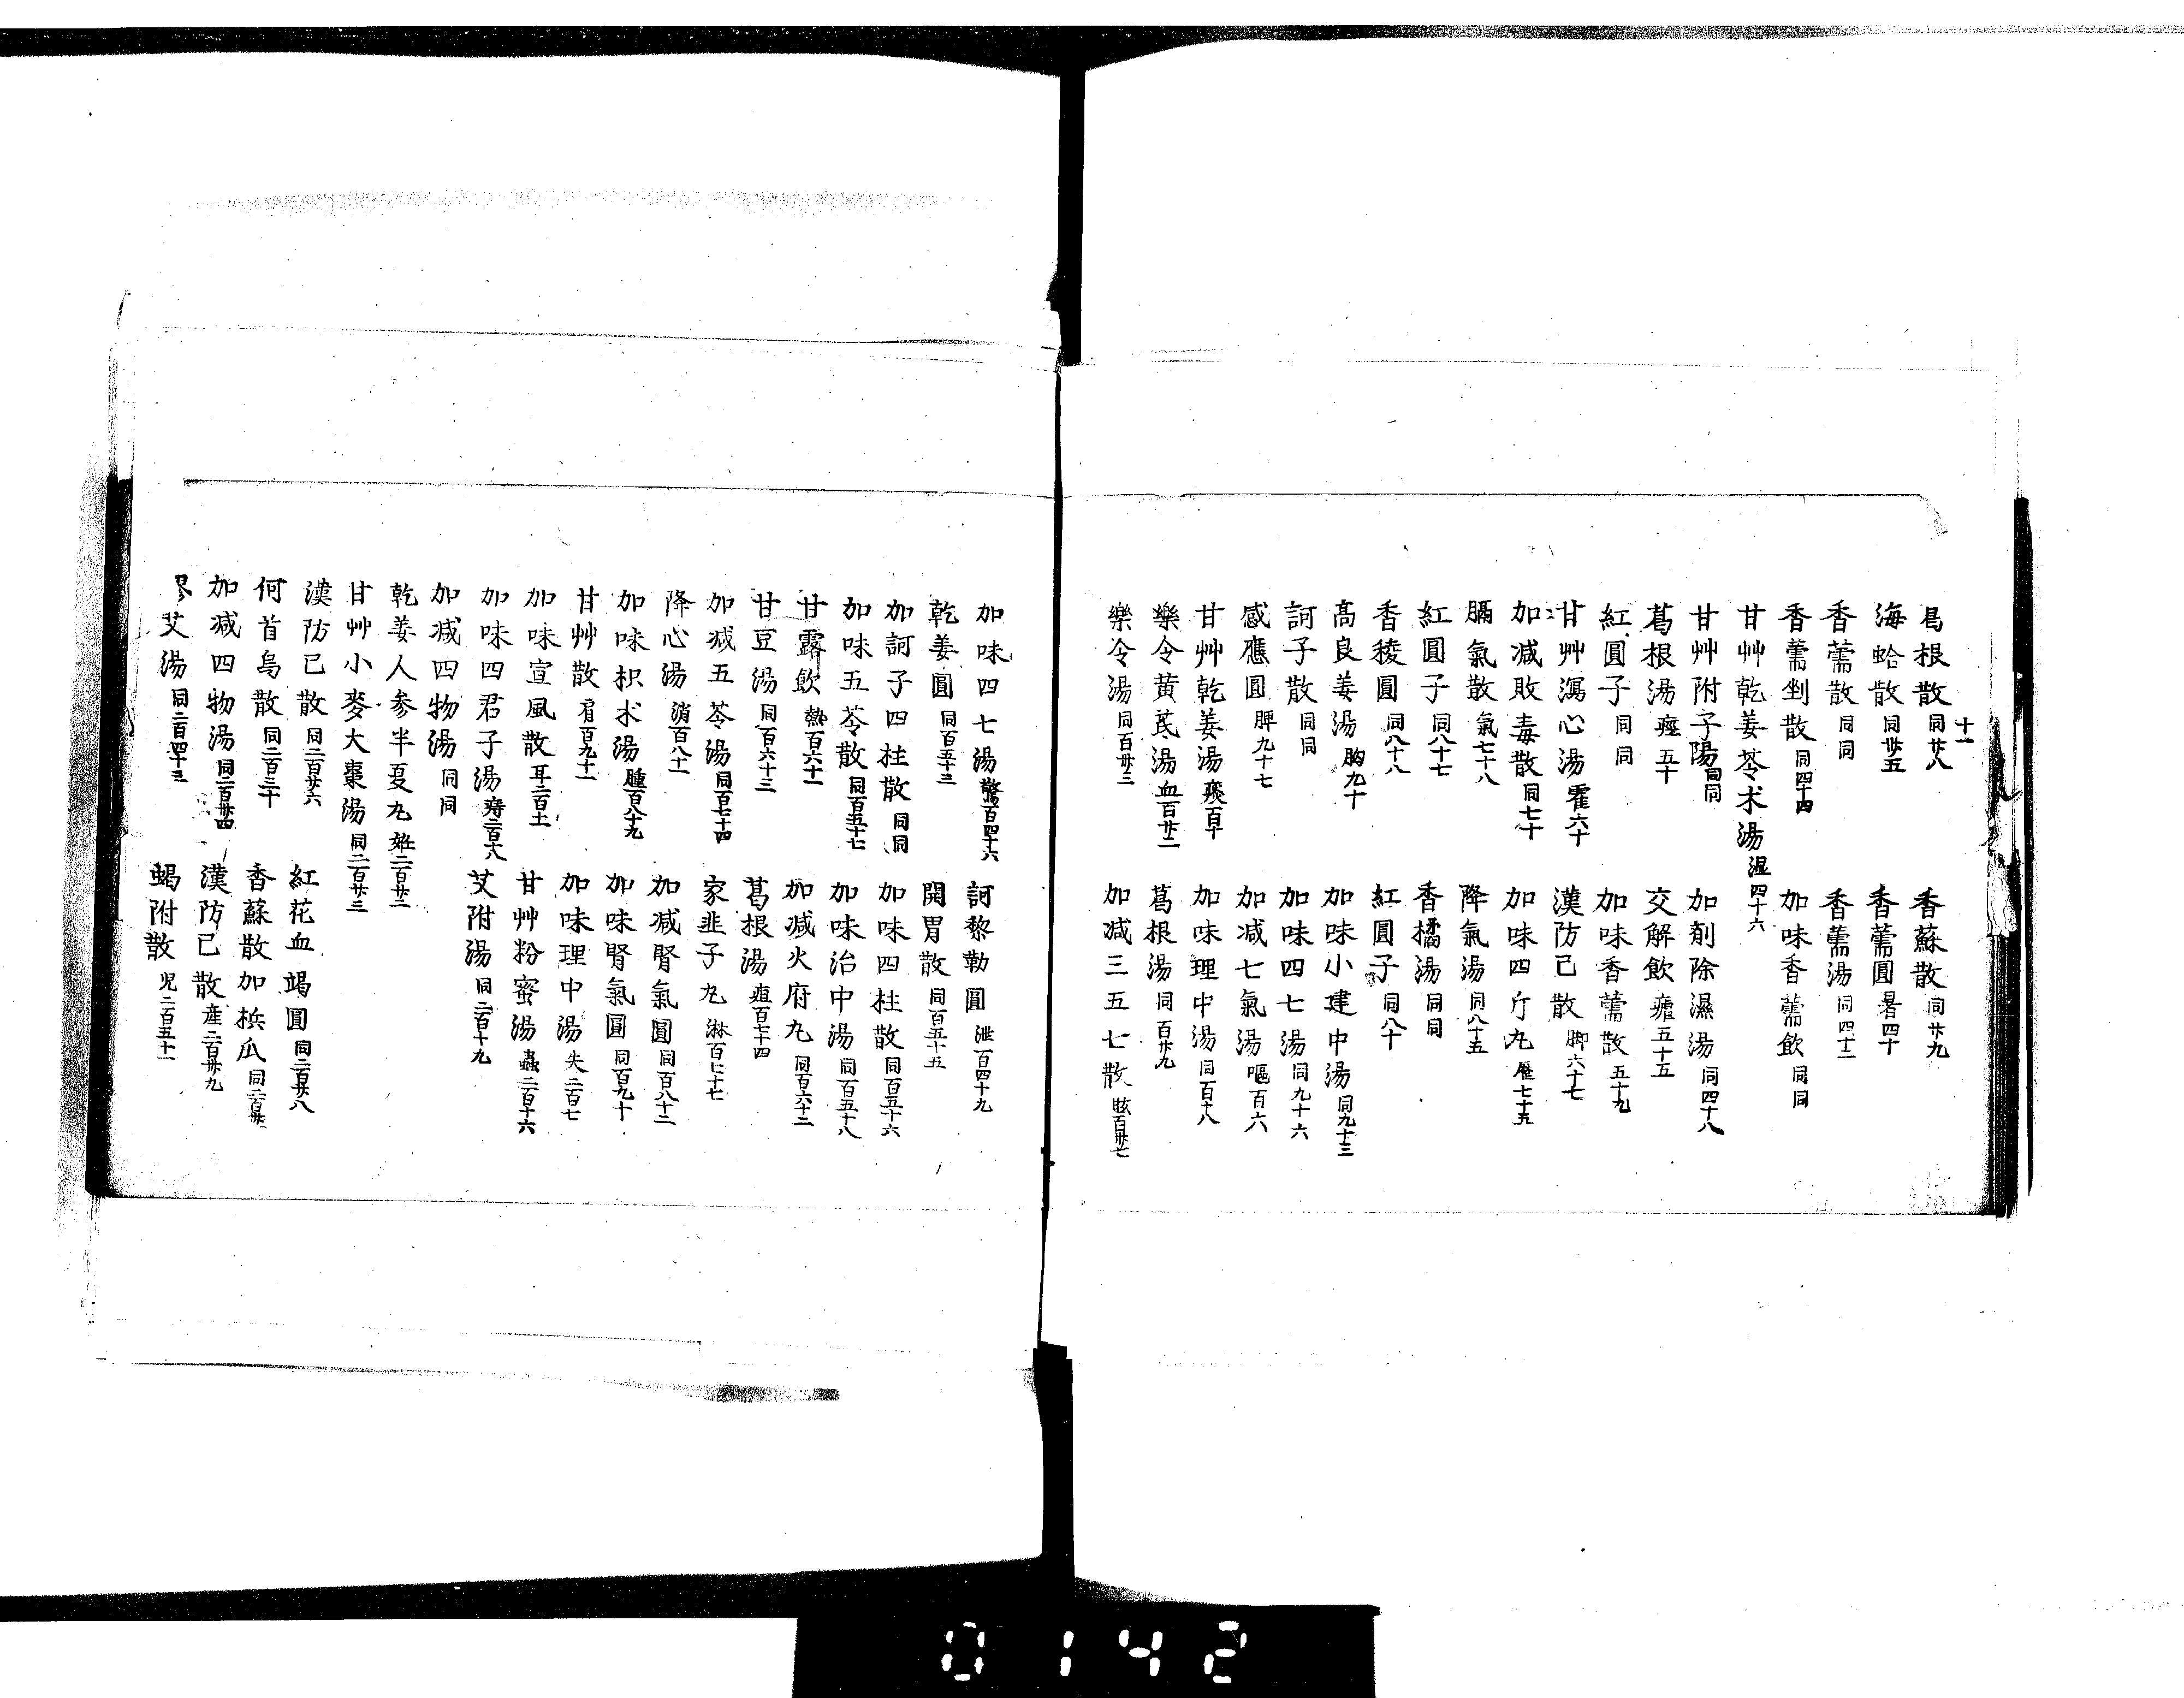 十一
葛根散 同廿八 香蘇散 同廿九
海蛤散 同卅五 香薷圓 暑四十
香薷散 同同 香薷湯 同四十二
香薷剉散 同四十四 加味香薷飲 同同
甘艸乾姜苓术湯 湿四十六
甘艸附子陽 同同 加剤除濕湯 同四十八
葛根湯 痙五十 交解飲 瘧五十五
紅圓子 同同 加味香薷散 五十九
甘艸瀉心湯 霍六十 漢防已散 脚六十七
加减敗毒散 同七十 加味四斤丸 七十五
膈氣散 氣七十八 降氣湯 同八十五
紅圓子 同八十七 香橘湯 同同
香稜圓 同八十八 紅圓子 同八十
高良姜湯 胸九十 加味小建中湯 同九十三
訶子散 同同 加味四七湯 同九十六
感應圓 脾九十七 加减七氣湯 嘔百六
甘艸乾姜湯 痰百十 加味理中湯 同百十八
樂令黄茋湯 血百廿二 葛根湯 同百廿九
樂令湯 同百卅三 加减三五七散 眩百卅七
加味四七湯 驚百四十六 訶黎勒圓 泄百四十九
乾姜圓 同百五十三 開胃散 同百五十五
加訶子四柱散 同同 加味四柱散 同百五十六
加味五苓散 同百五十七 加味治中湯 同百五十八
甘露飲 熱百六十一 加减火府丸 同百六十二
甘豆湯 同百六十三 葛根湯 疸百七十四
加减五苓湯 同百七十四 家韭子丸 淋百七十七
降心湯 消百八十一 加减腎氣圓 同百八十二
加味枳术湯 腫百八十九 加味腎氣圓 同百九十
甘艸散 肩百九十一 加味理中湯 失二百七
加味宣風散 耳二百十一 甘艸粉蜜湯 蟲二百十六
加味四君子湯 痔二百十八 艾附湯 同二百十九
加减四物湯 同同
乾姜人参半夏丸 姙二百廿二
甘艸小麥大棗湯 同二百廿三
漢防已散 同二百廿六 紅花血竭圓 同二百廿八
何首烏散 同二百三十 香蘇散加梹瓜 同二百卅
加减四物湯 同二百卅四 漢防已散 産二百卅九
艾湯 同二百四十三 蝎附散 児二百五十一
0142